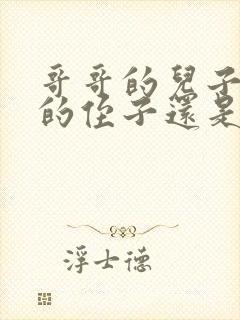 哥哥的兒子
的侄子還是
浮士德